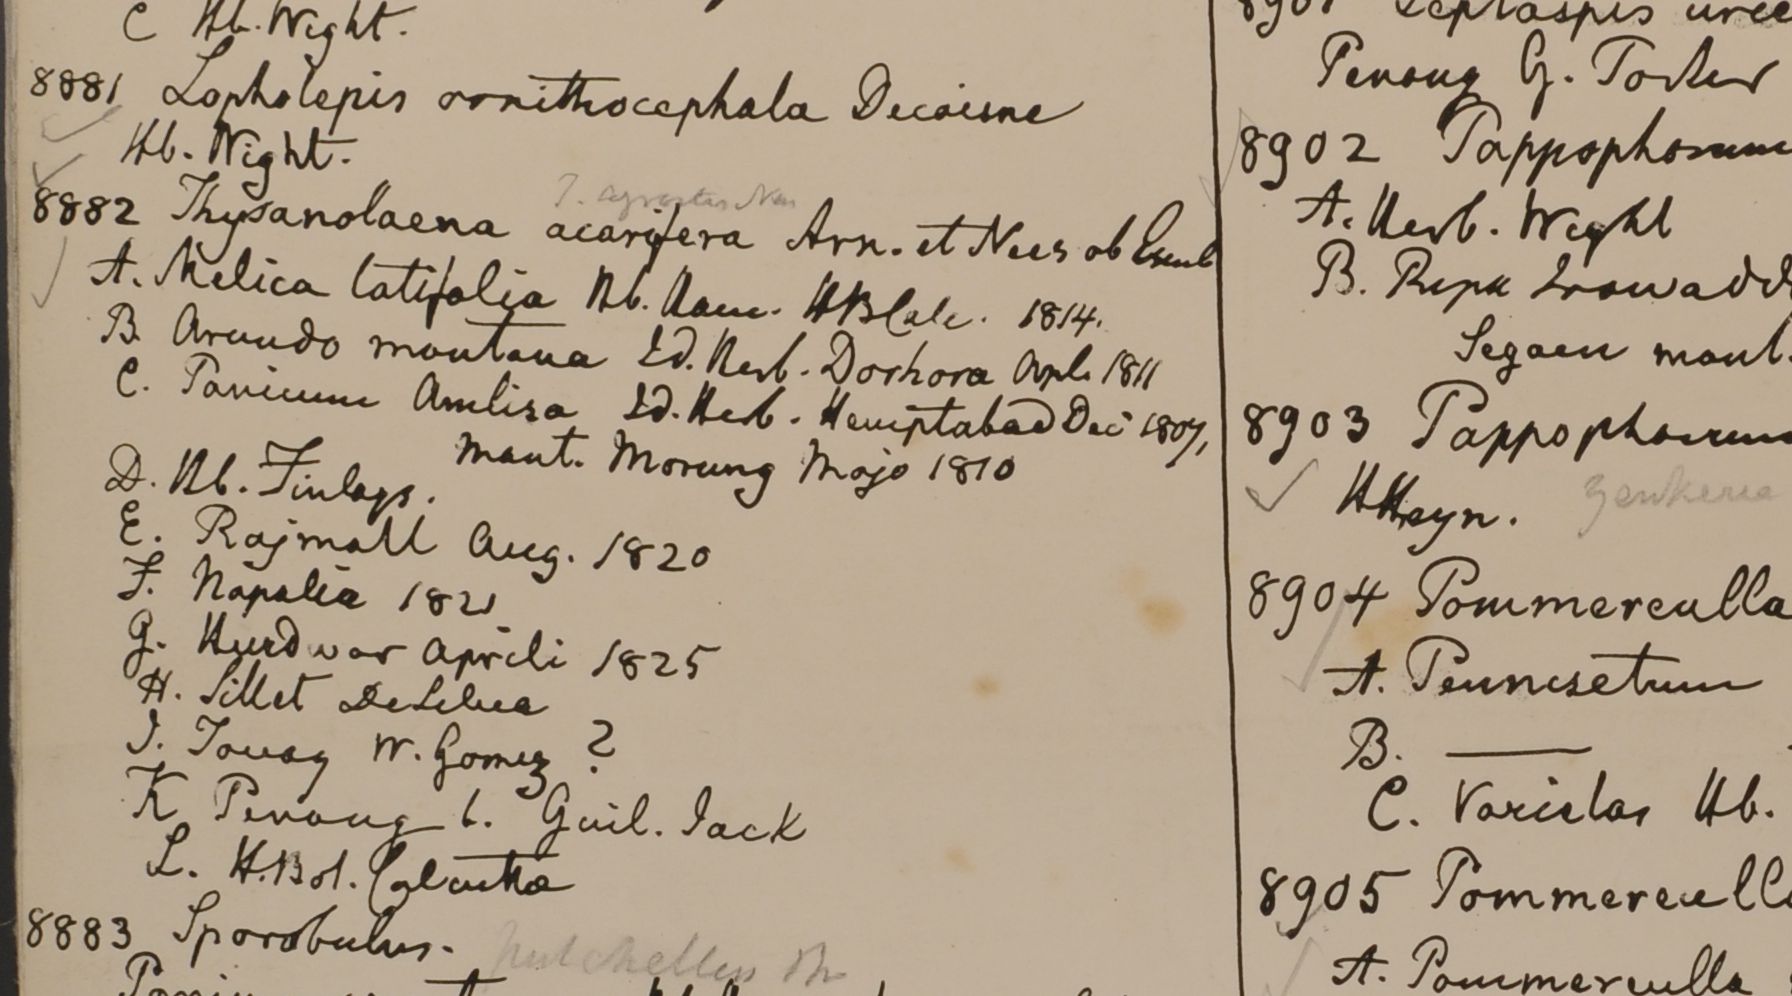 C Hb. Wight.
8881 Lopholepis ornithocephala Decaisne
Hb. Wight.
T. agrostis Nees
8882 Thysanolaena acarifera Arn. et Nees ab Esenb
A. Melica latifolia Hb. Ham. HBCalc. 1814.
B Arundo montana Ed. Herb. Dorhora Apl. 1811
C. Panicum Amlisa Ed. Herb. Hemptabad Dec 1807,
mont. Morung Majo 1810
D. Hb. Finlays.
E. Rajmall Aug. 1820
F. Napalia 1821
G. Hurdwar Aprili 1825
H. Sillet DeSilva
I. Tovay W. Gomez ?
K Penang b. Guil. Jack
L. H. Bot. Calcutta
8883 Sporobulus.
8901 Leptaspis urce
Penang G. Porter
8902 Pappophorum
A. Herb. Wight
B. Ripa Irawaddi
Segaen mont.
8903 Pappophorum
HHeyn. Zenkeria
8904 Pommereulla
A. Pennisetum
B. ———
C. Varietas Hb.
8905 Pommereulla
A. Pommereulla